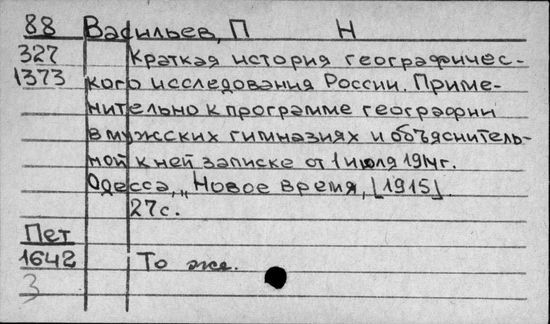 88 Васильев, П Н
327 Краткая история географичес-
1373 кого исследования России. Приме-
нительно к программе географии
в мужских гимназиях и объяснитель-
ной к ней записке от 1 июля 1914 г.
Одесса, „Новое время, [1915].
27 с.
Пет
1642 То же.
3